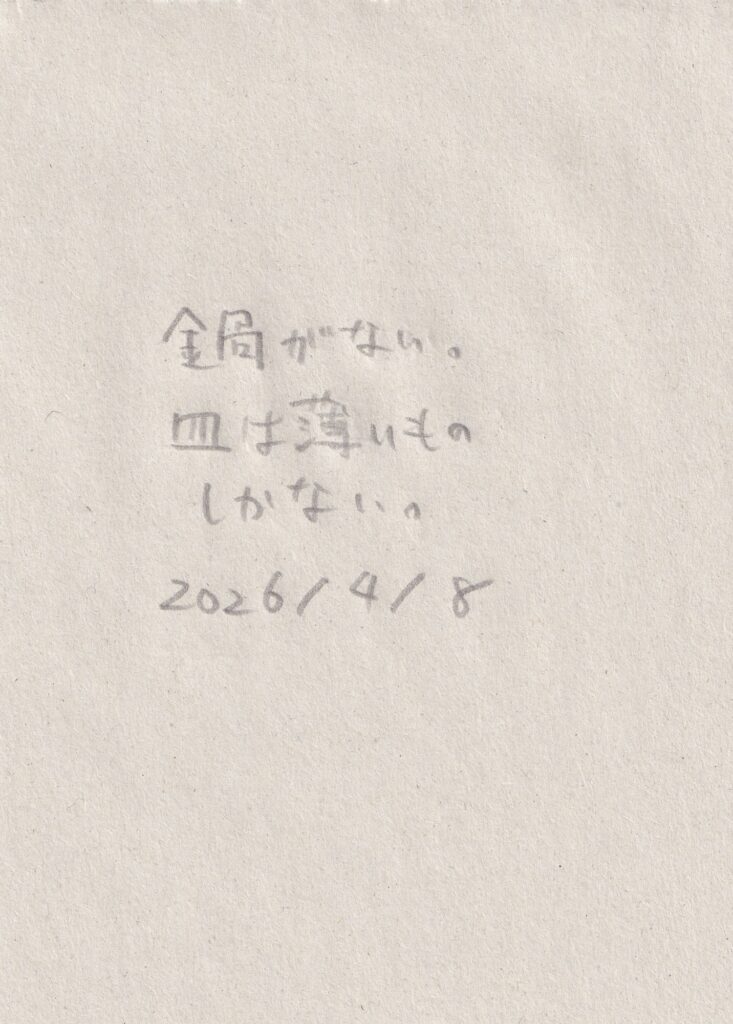 鍋がない。
皿は薄いもの
しかない。
2026/4/8